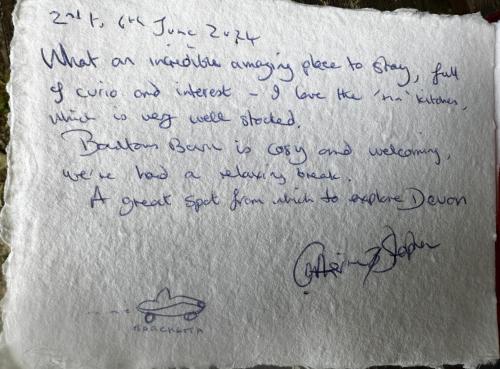 2nd to 6th June 2024
What an incredible amazing place to stay, full
of curio and interest - I love the kitchen,
which is very well stocked.
Barn is cosy and welcoming,
we've had a relaxing break.
A great spot from which to explore Devon
Stephen